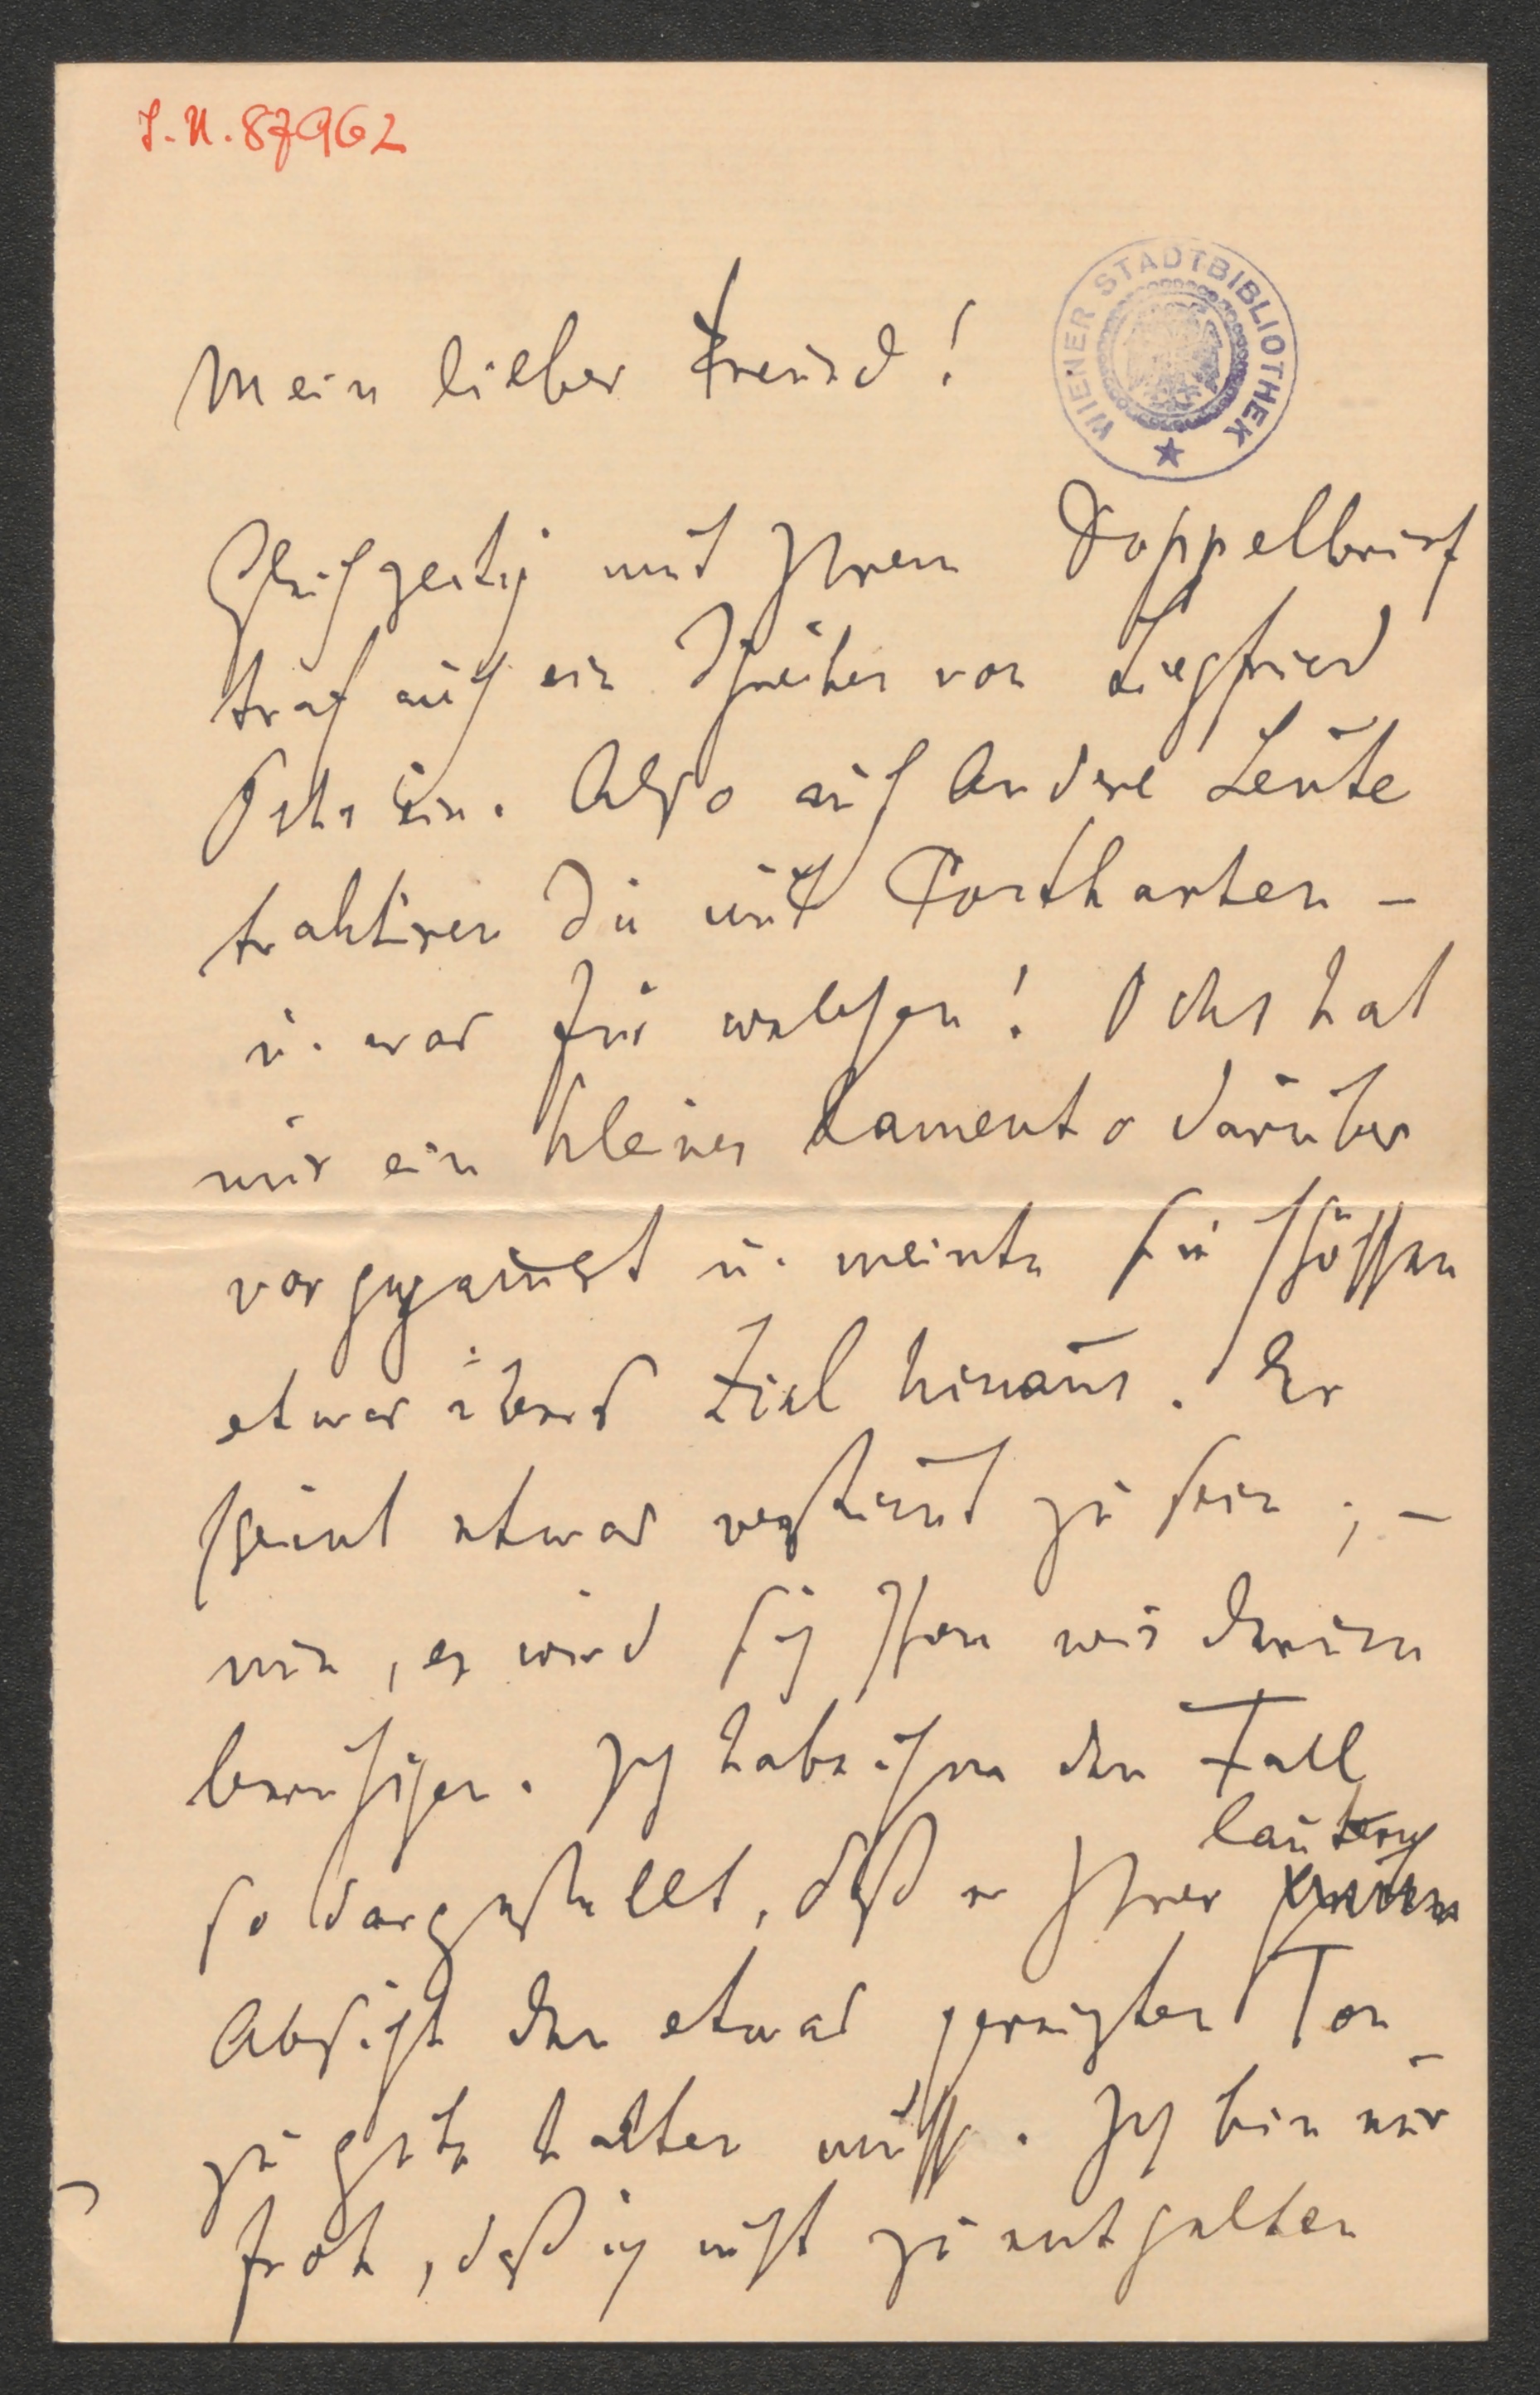 I.N. 87962
WIENER STADTBIBLIOTHEK
Mein lieber Freund!
Gleichzeitig mit Ihrem Doppelbrief
traf auch ein Schreiben von Siegfried
Ochs ein. Also auch andere Leute
traktiren Sie mit Postkarten –
u. was für welchen! Ochs hat
mir ein kleines Lamento darüber
vorgejammert u. meinte Sie schössen
etwas übers Ziel hinaus. Er
scheint etwas verstimmt zu sein; –
nun, er wird sich schon wieder
beruhigen. Ich habe ihm den Fall
so dargestellt, daß er Ihrer
lautern
Absicht den etwas gereizten Ton
zu gute halten muß. Ich bin nur
froh, daß ich nicht zu entgelten